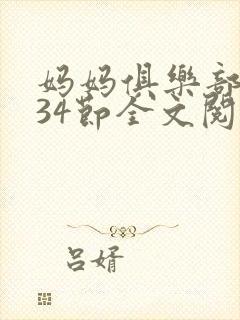 妈妈俱樂部
34節全文閱
吕婿